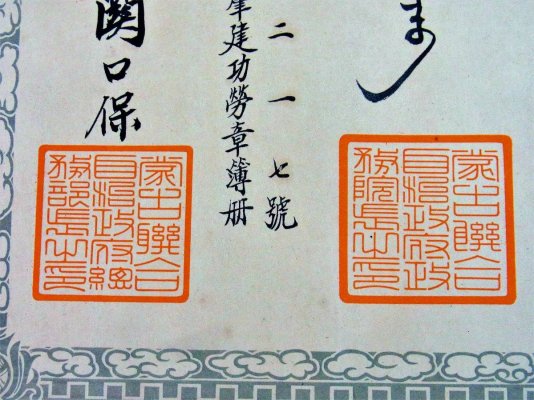 蒙古聯合
自治政府政
務院長之印
二一七號
肇建功勞章簿册
関口保
蒙古聯合
自治政府總
務部長之印